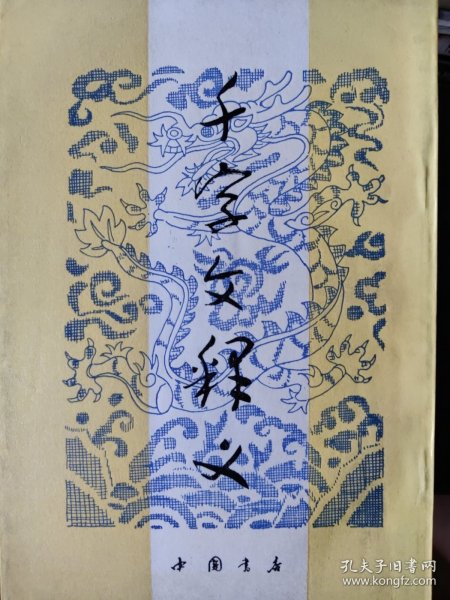 千字文释义
中国书店
孔夫子旧书网
www.kongfz.com